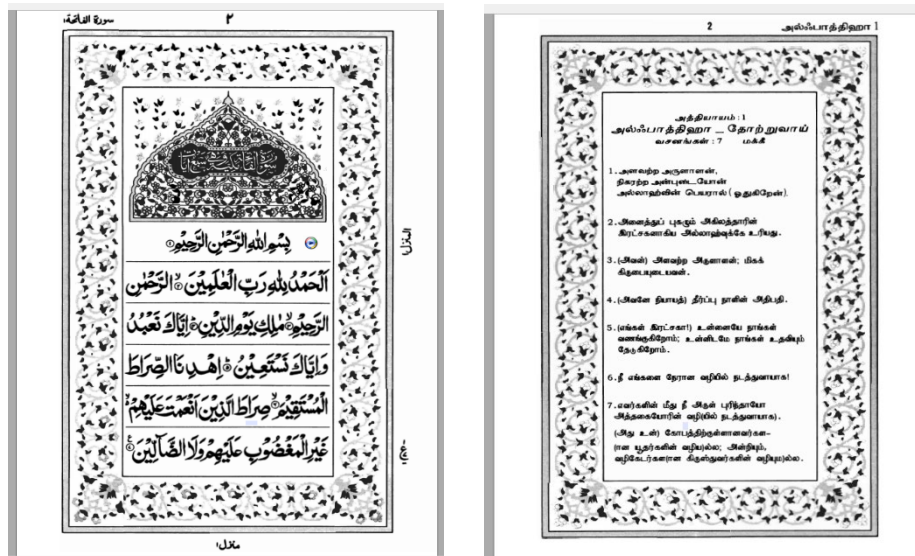 سورة الفاتحة ١
٢
بِسْمِ اللهِ الرَّحْمٰنِ الرَّحِيْمِ
اَلْحَمْدُ لِلّٰهِ رَبِّ الْعٰلَمِيْنَ الرَّحْمٰنِ
الرَّحِيْمِ مٰلِكِ يَوْمِ الدِّيْنِ اِيَّاكَ نَعْبُدُ
وَاِيَّاكَ نَسْتَعِيْنُ اِهْدِنَا الصِّرَاطَ
الْمُسْتَقِيْمَ صِرَاطَ الَّذِيْنَ اَنْعَمْتَ عَلَيْهِمْ
غَيْرِ الْمَغْضُوْبِ عَلَيْهِمْ وَلَا الضَّآلِّيْنَ
المنزل ١
منزل ١
2
அல்ஃபாத்திஹா 1
அத்தியாயம் : 1
அல்ஃபாத்திஹா – தோற்றுவாய்
வசனங்கள் : 7 மக்கீ
1. அளவற்ற அருளாளன்,
நிகரற்ற அன்புடையோன்
அல்லாஹ்வின் பெயரால் ( ஓதுகிறேன்).
2. அனைத்துப் புகழும் அகிலத்தாரின்
இரட்சகனாகிய அல்லாஹ்வுக்கே உரியது.
3. (அவன்) அளவற்ற அருளாளன்; மிகக்
கிருபையுடையவன்.
4. (அவனே நியாயத்) தீர்ப்பு நாளின் அதிபதி.
5. (எங்கள் இரட்சகா!) உன்னையே நாங்கள்
வணங்குகிறோம்; உன்னிடமே நாங்கள் உதவியும்
தேடுகிறோம்.
6. நீ எங்களை நேரான வழியில் நடத்துவாயாக!
7. எவர்களின் மீது நீ அருள் புரிந்தாயோ
அத்தகையோரின் வழி(யில் நடத்துவாயாக).
(அது உன்) கோபத்திற்குள்ளானவர்கள–
(ான யூதர்களின் வழிய)ல்ல; அன்றியும்,
வழிகேடர்கள(ான கிருஸ்துவர்களின் வழியும)ல்ல.